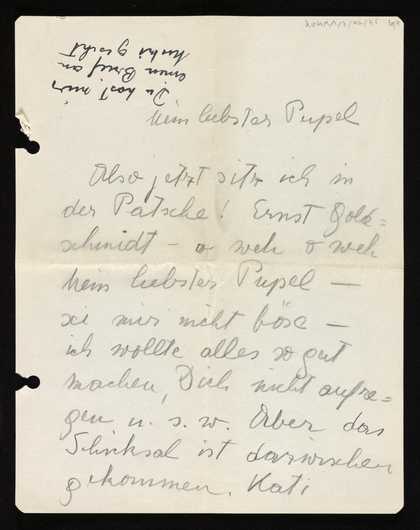 Du hast mir
einen Brief an
geschickt
Mein liebster Pupel
Also jetzt sitz ich in
der Patsche! Ernst Gold=
schmidt – o weh o weh
Mein liebster Pupel —
sei mir nicht böse —
ich wollte alles so gut
machen, Dich nicht aufre=
gen u. s. w. Aber das
Schicksal ist dazwischen
gekommen. Kati